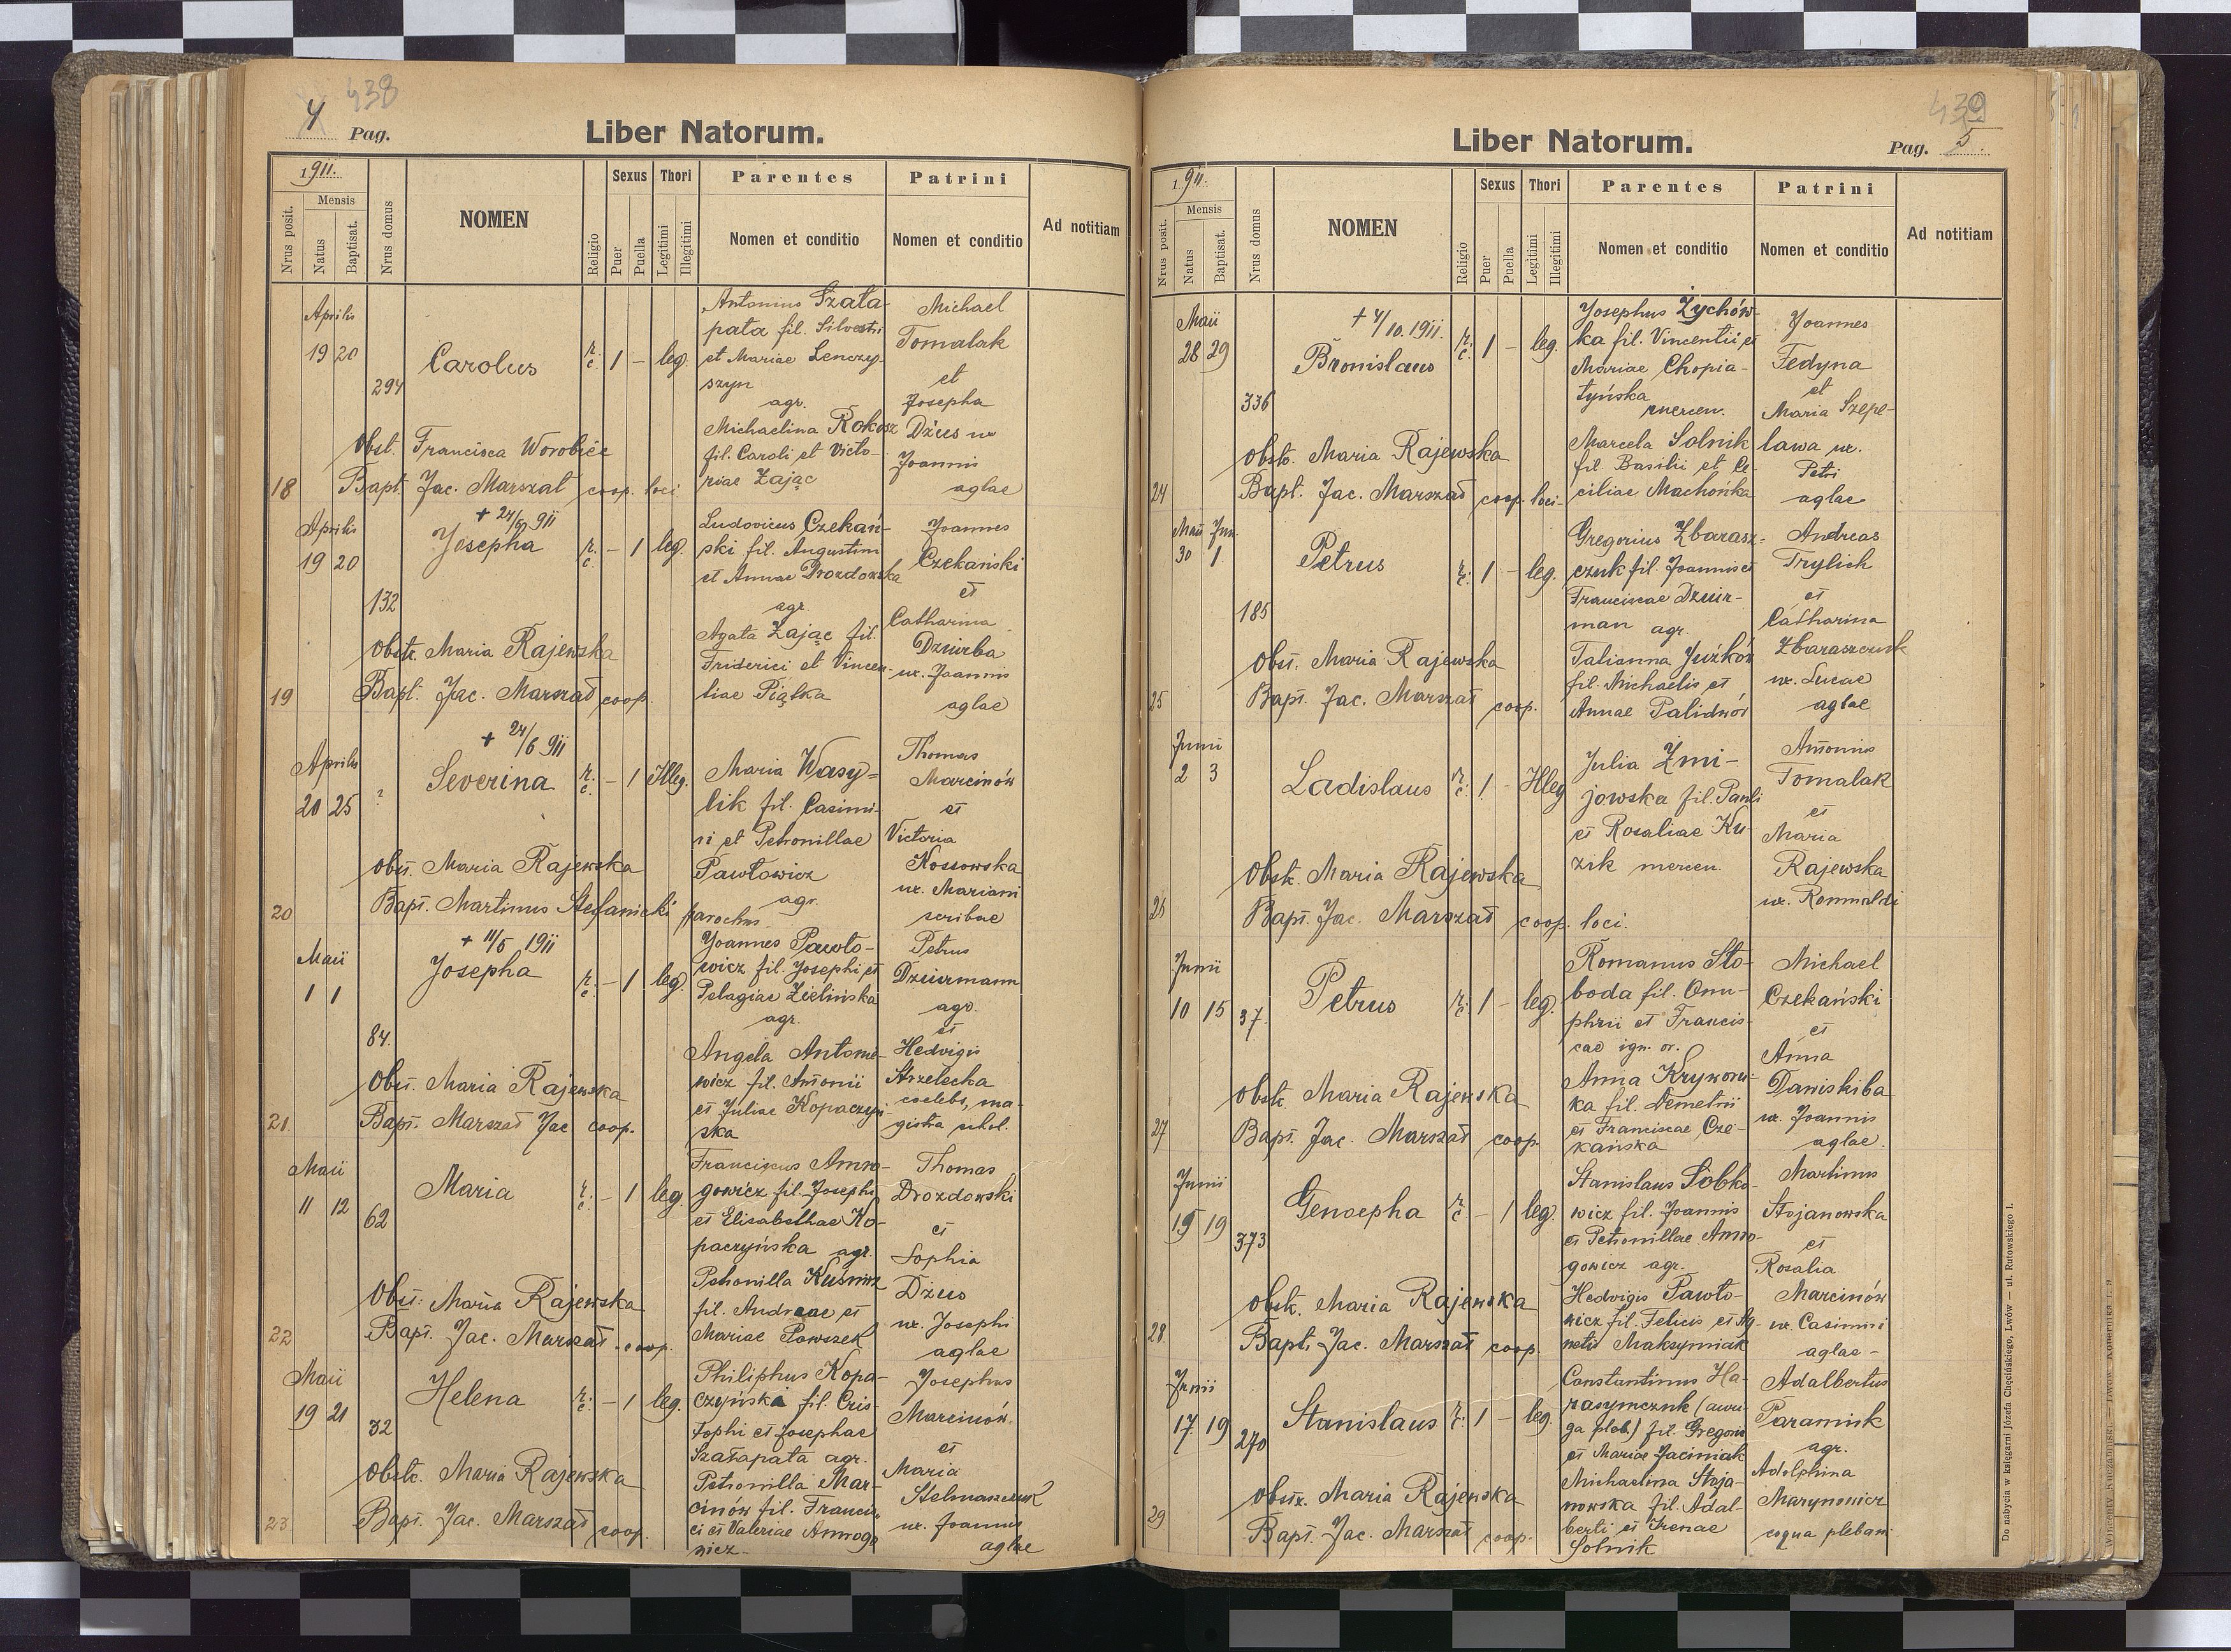 438
4 Pag.
Liber Natorum.
1911.
Nrus posit.
Mensis
Natus
Baptisat.
Nrus domus
NOMEN
Religio
Sexus
Puer
Puella
Thori
Legitimi
Illegitimi
Parentes
Nomen et conditio
Patrini
Nomen et conditio
Ad notitiam
Aprilis
19 20
294
Carolus
r. c. 1 – leg.
Antonius Szała-
pata fil. Silvestri
et Mariae Lenczy-
szyn
agr.
Michaelina Rokosz
fil. Caroli et Victo-
riae Zając
Michael
Tomalak
et
Josepha
Dżus ux
Joannis
aglae
Obst. Francisca Worobiec
18 Bapt. Jac. Marszał coop. loci
Aprilis
19 20
132
+ 24/6 911
Josepha
r. c. – 1 leg.
Ludovicus Czekań-
ski fil. Augustini
et Annae Drozdowska
agr.
Agata Zając fil.
Friderici et Vincen-
tiae Piątka
Joannes
Czekański
et
Catharina
Dziurba
ux. Joannis
aglae
Obstr. Maria Rajewska
19 Bapt. Jac. Marszał coop.
Aprilis
20 25 ?
+ 24/6 911
Severina
r. c. – 1 Illeg.
Maria Wasy-
lik fil. Casimi-
ri et Petronillae
Pawłowicz
agr.
Thomas
Marcinów
et
Victoria
Kossowska
ux. Mariani
scribae
Obst. Maria Rajewska
20 Bapt. Martinus Stefanicki parochus
Maii
1 1
84.
+ 11/5 1911
Josepha
r. c. – 1 leg.
Joannes Pawło-
wicz fil. Josephi et
Pelagiae Zielińska
agr.
Angela Antonie-
wicz fil. Antonii
et Juliae Kopaczyń-
ska
Petrus
Dziurmann
agr.
et
Hedvigis
Strzelecka
coelebs, ma-
gistra schol.
Obst. Maria Rajewska
21. Bapt. Marszał Jac coop.
Maii
11 12
62
Maria
r. c. – 1 leg
Franciscus Amro-
gowicz fil. Josephi
et Elisabethae Ko-
paczyńska agr.
Petronilla Kuśnirz
fil. Andreae et
Mariae Powszek
Thomas
Drozdowski
et
Sophia
Dżus
ux. Josephi
aglae
Obst. Maria Rajewska
22 Bapt. Jac. Marszał coop.
Maii
19 21
32
Helena
r. c. – 1 leg.
Philiphus Kopa-
czyński fil. Cris-
tophi et Josephae
Szałapata agr.
Petronilla Mar-
cinów fil. Francis-
ci et Valeriae Amrogo
wicz
Josephus
Marcinów
et
Maria
Stelmaszczuk
ux. Joannis
aglae
Obstr. Maria Rajewska
23 Bapt. Jac. Marszał coop.
439
Liber Natorum.
Pag. 5.
1911.
Nrus posit.
Mensis
Natus
Baptisat.
Nrus domus
NOMEN
Religio
Sexus
Puer
Puella
Thori
Legitimi
Illegitimi
Parentes
Nomen et conditio
Patrini
Nomen et conditio
Ad notitiam
Maii
28 29
336
+ 4/10. 1911.
Bronislaus
r. c. 1 – leg.
Josephus Zychów-
ka fil. Vincentii et
Mariae Chopia-
tyńska
mercen.
Marcela Solnik
fil. Basilii et Ce-
ciliae Machońka
Joannes
Fedyna
et
Maria Szepe-
lawa ux.
Petri
aglae
obstr. Maria Rajewska
24 Bapt. Jac. Marszał coop. loci
Maii Jun.
30 1.
185
Petrus
r. c. 1 – leg.
Gregorius Zbarasz-
czuk fil. Joannis et
Franciscae Dziur-
man agr.
Tatianna Juźków
fil. Michaelis et
Annae Palidwór
Andreas
Trylich
et
Catharina
Zbaraszczuk
ux. Lucae
aglae
Obst. Maria Rajewska
25 Bapt. Jac. Marszał coop.
Junii
2 3
Ladislaus
r. c. 1 – Illeg
Julia Zmi-
jowska fil. Pauli
et Rosaliae Ku-
zik mercen.
Antonius
Tomalak
et
Maria
Rajewska
ux. Romualdi
Obstr. Maria Rajewska
26 Bapt. Jac. Marszał coop. loci.
Junii
10 15
37.
Petrus
r. c. 1 – leg.
Romanus Sło-
boda fil. Onu-
phrii et Francis-
cae ign. or.
Anna Kryworu-
ka fil. Demetrii
et Franciscae Cze-
kańska
Michael
Czekański
et
Anna
Dawiskiba
ux. Joannis
aglae.
Obstr. Maria Rajewska
27 Bapt. Jac. Marszał coop.
Junii
15 19
373
Genoepha
r. c – 1 leg.
Stanislaus Sobko-
wicz fil. Joannis
et Petronillae Amro-
gowicz agr.
Hedvigis Pawło-
wicz fil. Felicis et Ag-
netis Maksymiak
Martinus
Stojanowska
et
Rosalia
Marcinów
ux. Casimiri
aglae –
obstr. Maria Rajewska
28. Bapt. Jac. Marszał coop.
Junii
17 19
270
Stanislaus
r. c. 1 – leg
Constantinus Ha-
rasymczuk (auri-
ga pleb.) fil. Gregorii
et Mariae Jaciniak
Michaelina Stoja-
nowska fil. Adal-
berti et Irenae
Solnik
Adalbertus
Paramiuk
agr.
Adolphina
Marynowicz
coqua plebani
obstr. Maria Rajewska
29 Bapt. Jac. Marszał coop.
Do nabycia w księgarni Józefa Chęcińskiego, Lwów — ul. Rutowskiego 1.